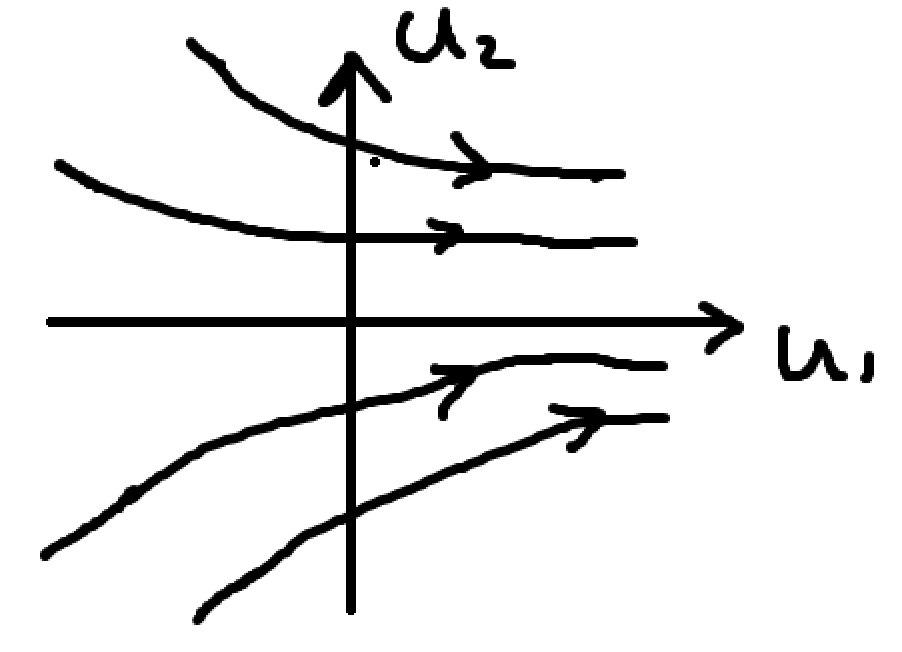 u₂
u₁